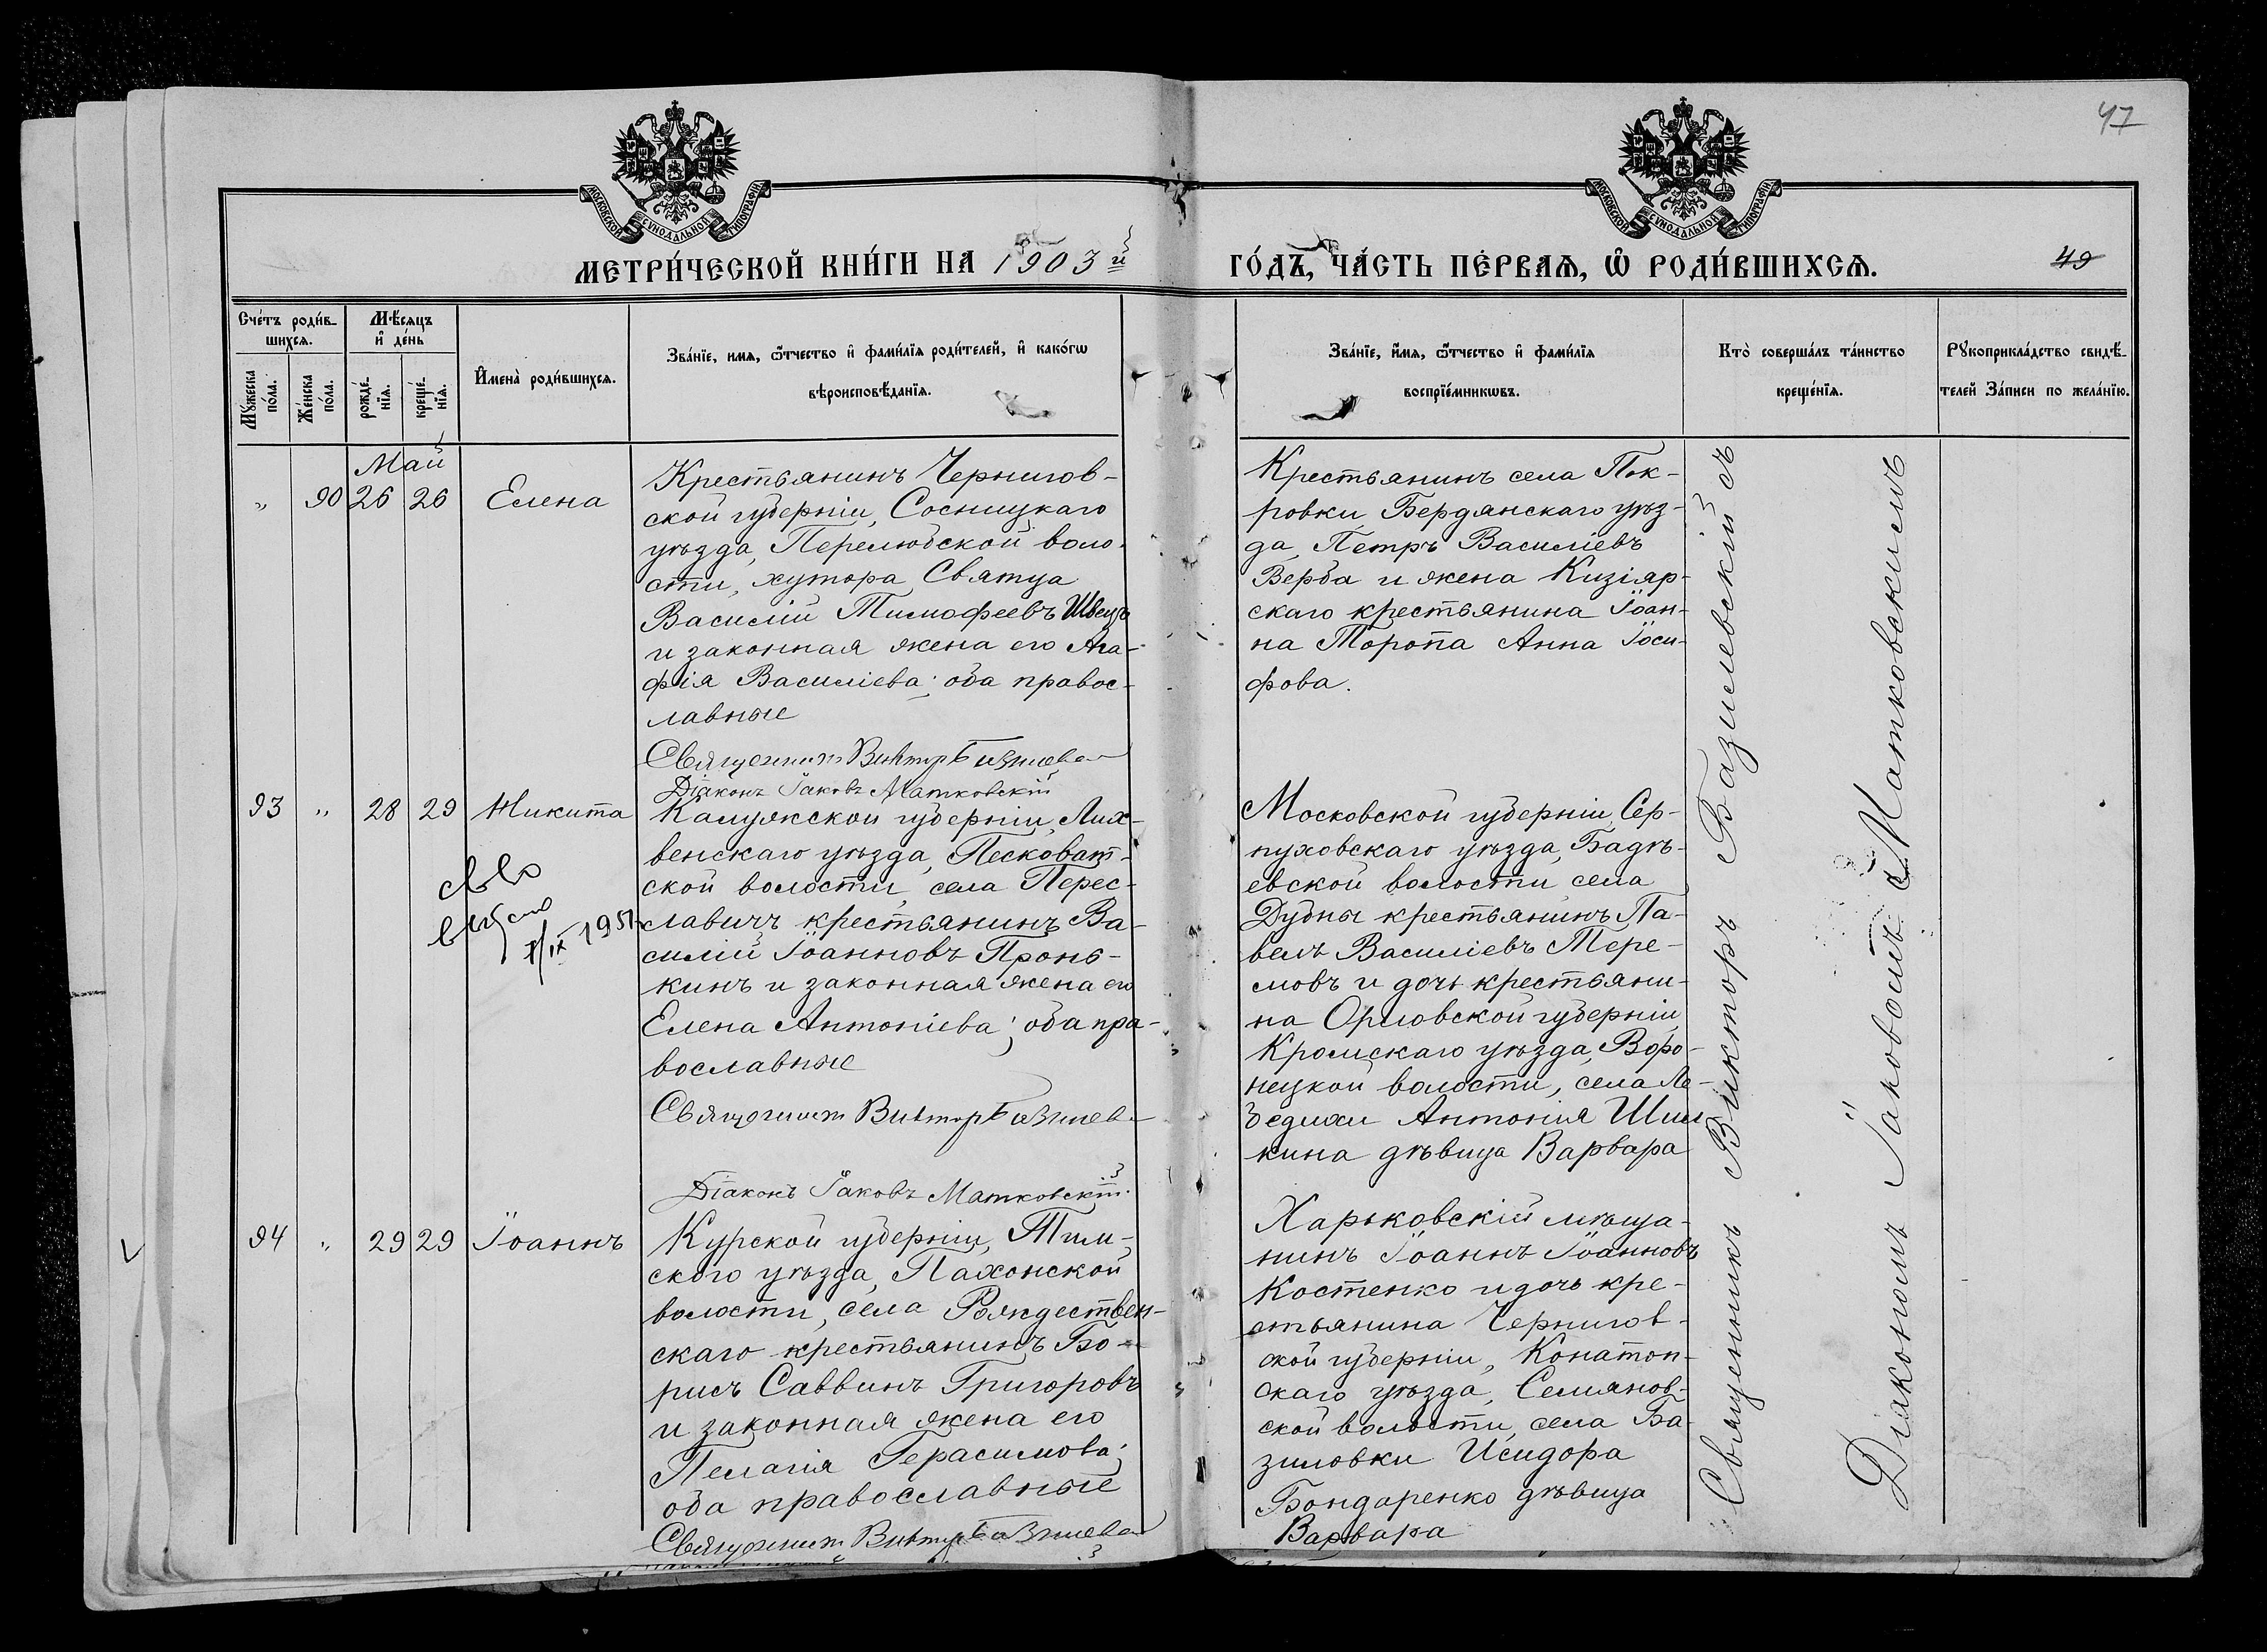 47
МОСКОВСКОЙ СѴНОДАЛЬНОЙ ТИПОГРАФІИ
МОСКОВСКОЙ СѴНОДАЛЬНОЙ ТИПОГРАФІИ
МЕТРИ́ЧЕСКОЙ КНИ́ГИ НА 1903 й
ГО́ДЪ, ЧА́СТЬ ПЕ́РВАѦ, Ѽ РОДИ́ВШИХСѦ.
49
Сче́тъ роди́в-
шихсѧ.
Мꙋ́жеска
по́ла.
Же́нска
по́ла.
Мѣ́сѧцъ
и҆ де́нь
рожде́-
нїѧ.
креще́-
нїѧ.
И҆мена̀ роди́вшихсѧ.
Зва́нїе, имѧ, ѻ҆́тчество и҆ фами́лїѧ роди́телей, и҆ како́гѡ
вѣроисповѣ́данїѧ.
Зва́нїе, и҆́мѧ, ѻ҆́тчество и҆ фами́лїѧ
воспрїе́мникѡвъ.
Кто̀ совершáлъ та́инство
креще́нїѧ.
Рꙋкоприкла́дство свидѣ́-
телей За́писи по жела́нїю.
Май
" 90 26 26 Елена
Крестьянинъ Чернигов-
ской губерніи, Сосницкаго
уѣзда, Перелюбской воло-
сти, хутора Святца
Василій Тимофеевъ Швецъ
и законная жена его Ага-
фія Василіева; оба правос-
лавные
Священникъ Викторъ Базилевс
Діаконъ Іаковъ Матковскій
Крестьянинъ села Пок-
ровки, Бердянскаго уѣз-
да, Петръ Василіевъ
Верба и жена Кизіяр-
скаго крестьянина Іоан-
на Торопа Анна Іоси-
фова.
93 " 28 29 Никита
1951
Калужской губерніи, Лих-
венскаго уѣзда, Песковат-
ской волости, села Перес-
лавичъ крестьянинъ Ва-
силій Іоанновъ Пронь-
кинъ и законная жена его
Елена Антоніева; оба пра-
вославные
Священникъ Викторъ Базилев
Діаконъ Іаковъ Матковскій.
Московской губерніи, Сер-
пуховскаго уѣзда, Бадѣ-
евской волости села
Дубны крестьянинъ Па-
велъ Василіевъ Тере-
мовъ и дочь крестьяни-
на Орловской губерніи,
Кромскаго уѣзда, Воро-
нецкой волости, села Ле-
бедихи Антонія Шиш-
кина дѣвица Варвара
94 " 29 29 Іоаннъ
Курской губерніи, Тим-
скаго уѣзда, Пахонской
волости, села Рождествен-
скаго крестьянинъ Бо-
рисъ Саввинъ Григоровъ
и законная жена его
Пелагія Герасимова;
оба православные
Священникъ Викторъ Базилевс
Харьковскій мѣща-
нинъ Іоаннъ Іоанновъ
Костенко и дочь кре-
стьянина Чернигов-
ской губерніи, Конатоп-
скаго уѣзда, Семянов-
ской волости, села Ба-
зиловки Исидора
Бондаренко дѣвица
Варвара
Священникъ Викторъ Базилевскій съ
Діакономъ Іаковомъ Матковскимъ